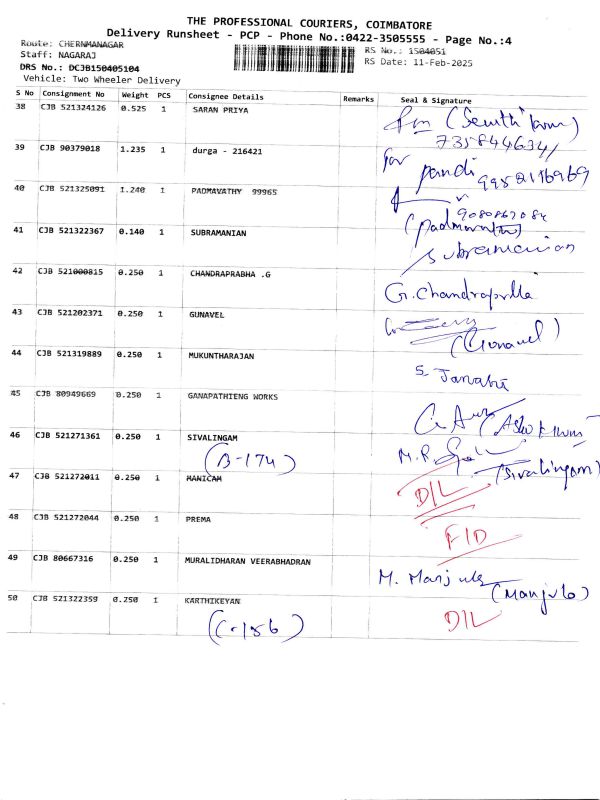 THE PROFESSIONAL COURIERS, COIMBATORE
Delivery Runsheet - PCP - Phone No.:0422-3505555 - Page No.:4
Route: CHERNMANAGAR
RS No.: 1504051
Staff: NAGARAJ
RS Date: 11-Feb-2025
DRS No.: DCJB150405104
Vehicle: Two Wheeler Delivery
S No Consignment No Weight PCS Consignee Details Remarks Seal & Signature
38 CJB 521324126 0.525 1 SARAN PRIYA
39 CJB 90379018 1.235 1 durga - 216421 for pandi
40 CJB 521325091 1.240 1 PADMAVATHY 99965
41 CJB 521322367 0.140 1 SUBRAMANIAN Subramanian
42 CJB 521000815 0.250 1 CHANDRAPRABHA .G G. Chandraprabha
43 CJB 521202371 0.250 1 GUNAVEL (Gunavel)
44 CJB 521319889 0.250 1 MUKUNTHARAJAN S. Janaki
45 CJB 80949669 0.250 1 GANAPATHIENG WORKS
46 CJB 521271361 0.250 1 SIVALINGAM M.R.
(B-174) (Sivalingam)
47 CJB 521272011 0.250 1 MANICAM D/L
48 CJB 521272044 0.250 1 PREMA F/D
49 CJB 80667316 0.250 1 MURALIDHARAN VEERABHADRAN M. Manjula
(Manjula)
50 CJB 521322359 0.250 1 KARTHIKEYAN D/L
(C-156)